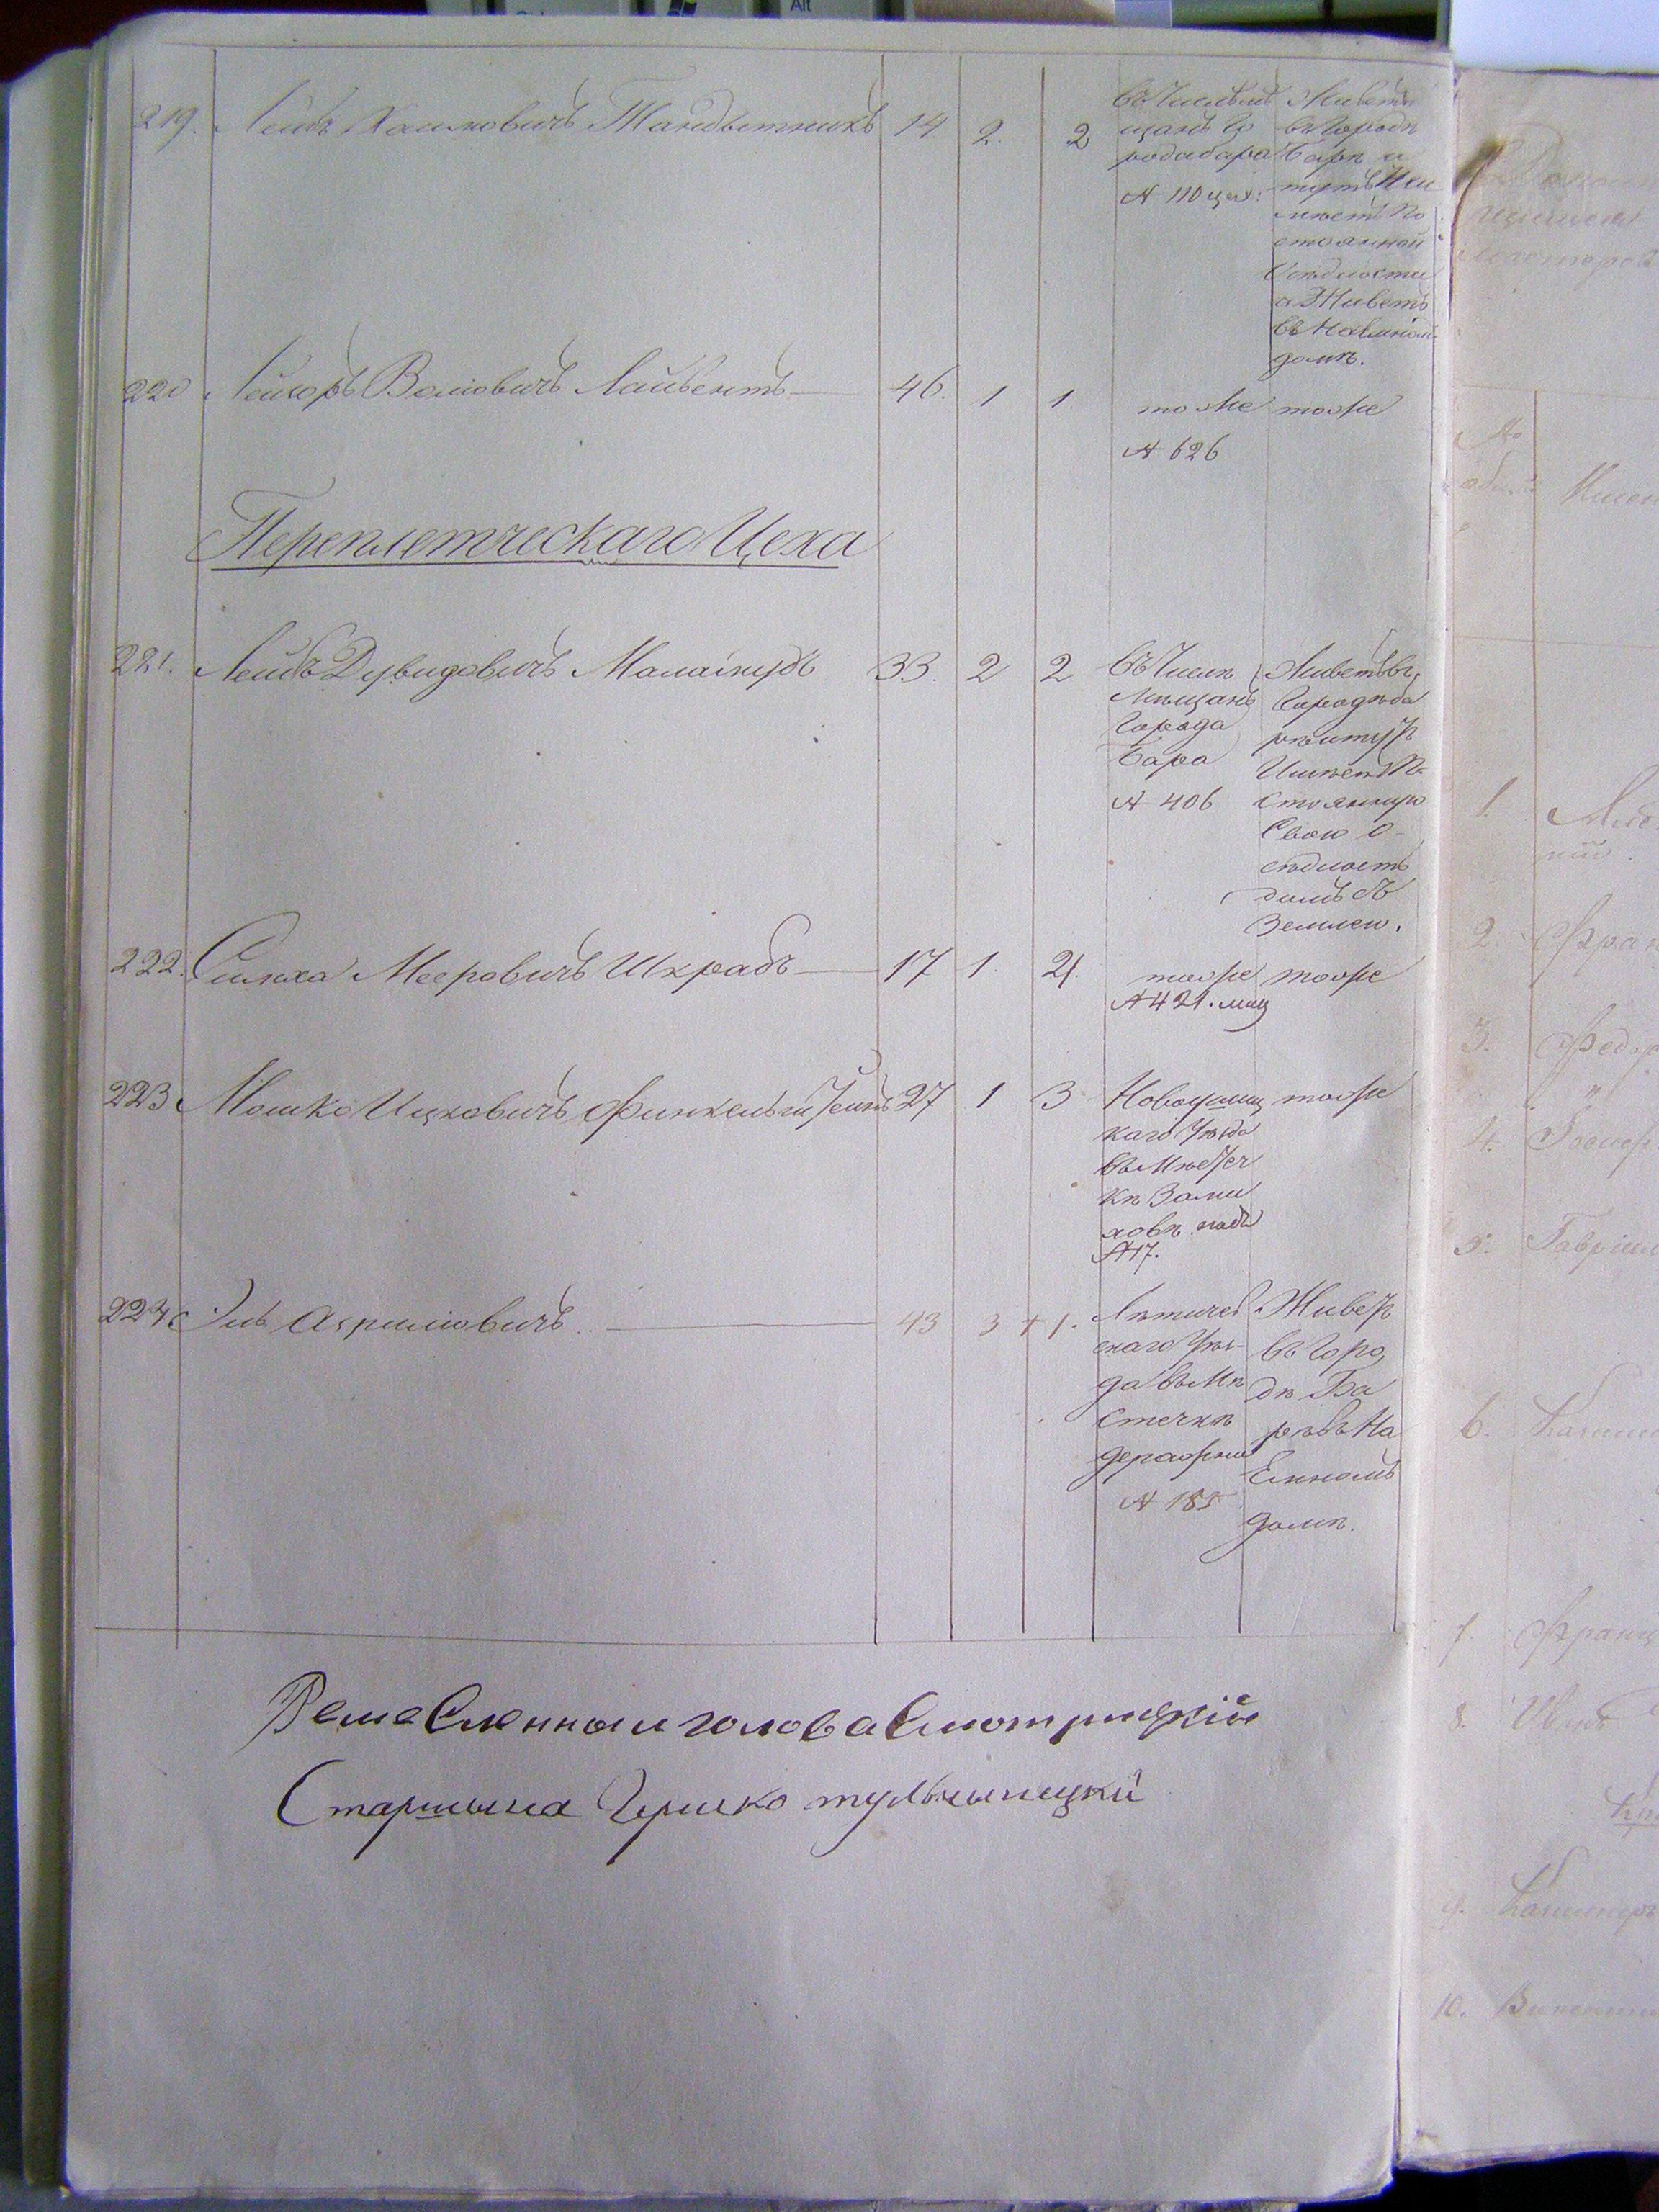 219. Лейбъ Хаимовичъ Тандытникъ 14 2. 2
въ Числѣ мѣ
щанъ Го
рода бара
№ 110 цех:
Живетъ
въ Городѣ
Барѣ и
тутъ Неи
мѣетъ По
стоянной
Осѣдлости
а Живетъ
въ Наемномъ
домѣ.
220 Лейзоръ Волковичъ Лайвентъ 46. 1 1
тоже
№ 626
тоже
Переплетческаго Цеха
221. Лейбъ Дувидовичъ Маламудъ 33. 2 2
въ Числѣ
Мѣщанъ
Города
Бара
№ 406
Живетъ въ
Городѣ ба
рѣ и тутъ
Имѣетъ По
стоянную
Свою О
сѣдлость
домъ съ
Землею.
222. Симха Мееровичъ Шкрабъ 17 1. 2.
тоже
№ 421. мещ
тоже
223 Мошко Ицковичъ Финкельштейнъ 27 1 3
Новоушиц
каго Уѣзда
въ Мѣстеч
кѣ Зами
ховѣ подъ
№ 17.
тоже
224 43 3 + 1.
Летичев
скаго Уѣз
да въ Мѣ
стечкѣ
деражнѣ
№ 185
Живетъ
въ Горо
дѣ Ба
рѣ въ На
Емномъ
домѣ.
Ремесленный голова Смотрицкій
Старшына Гершко тульчынецкий
1.
2. Фран
3. Федо
4.
5. Гавріил
6.
7. Франц
8. Иванъ
9.
10.